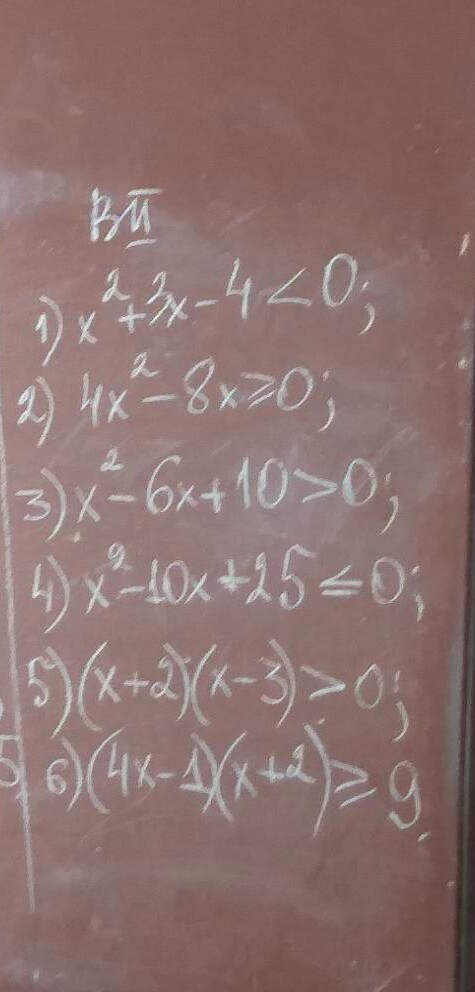 В II
1) x²+3x-4<0;
2) 4x²-8x≥0;
3) x²-6x+10>0;
4) x²-10x+25≤0;
5) (x+2)(x-3)>0;
6) (4x-1)(x+2)≥9